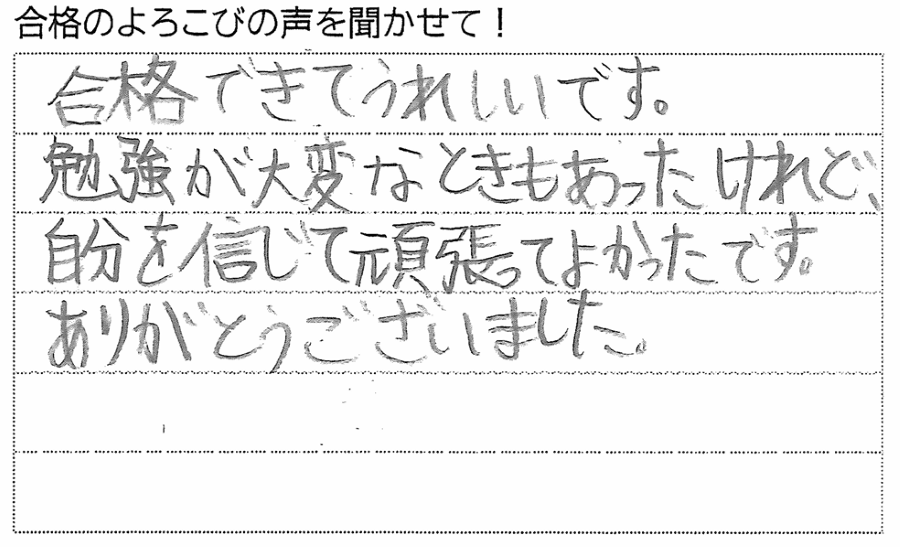 合格のよろこびの声を聞かせて！
合格できてうれしいです。
勉強が大変なときもあったけれど、
自分を信じて頑張ってよかったです。
ありがとうございました。